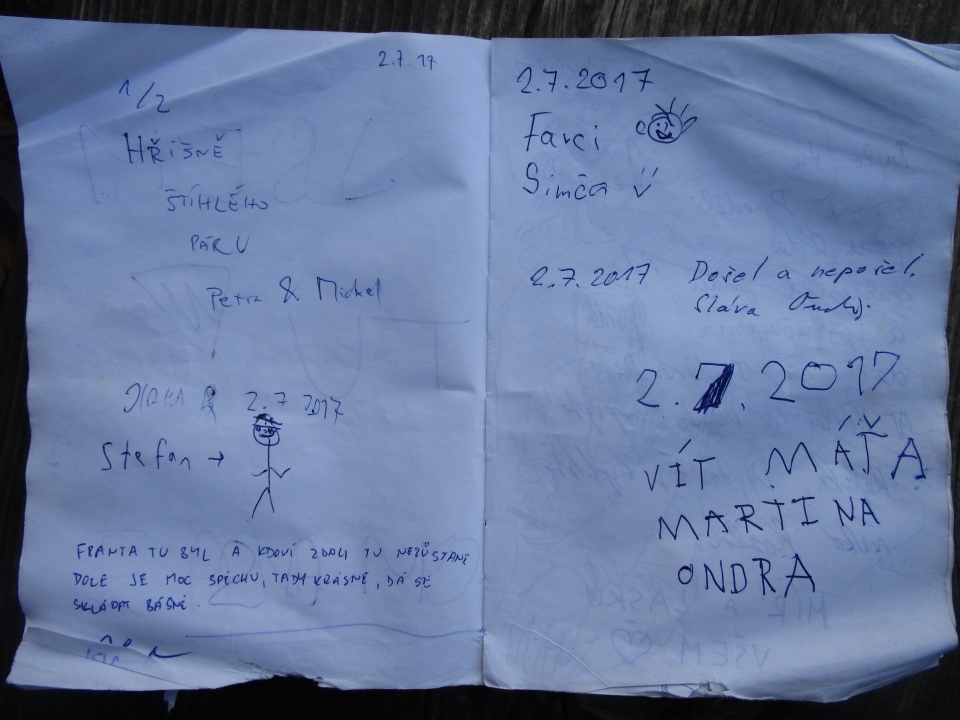 2.7.17
1/2
HŘÍŠNĚ
ŠTÍHLÉHO
PÁRU
Petra & Michal
JIRKA & 2.7 2017
Stefan →
FRANTA TU BYL A KDOVÍ ZDALI TU NEZŮSTANE
DOLE JE MOC SPĚCHU, TADY KRÁSNĚ, DÁ SE
SKLÁDAT BÁSNĚ.
2.7.2017
Farci
Simča
2.7.2017 Došel a nepošel.
Sláva Ondrej.
2.7.2017
VÍT MÁŤA
MARTINA
ONDRA
MÍR A LÁSKU
VŠEM